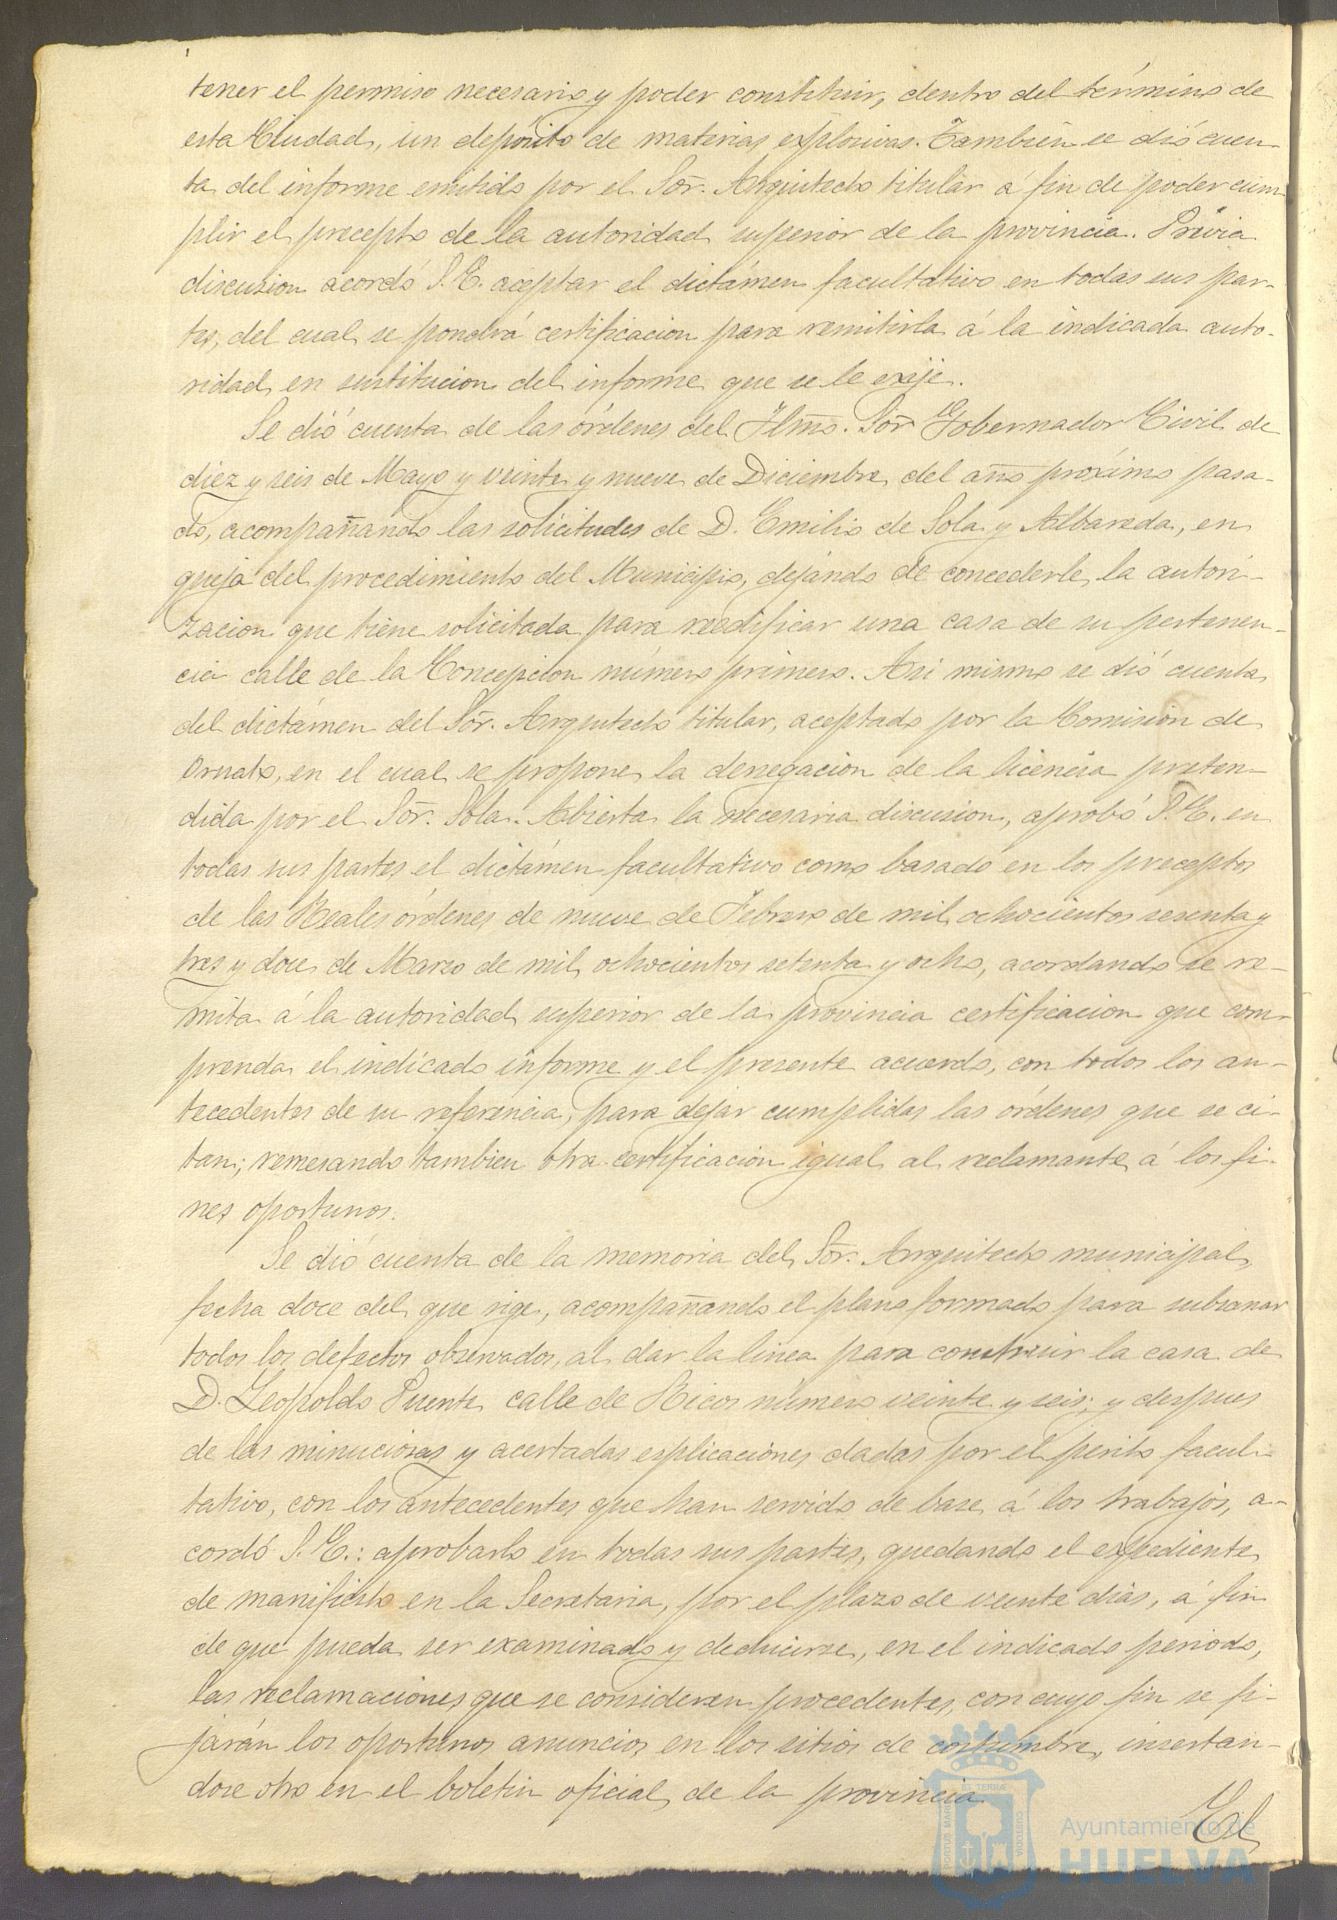 tener el permiso necesario y poder constituir, dentro del término de
esta Ciudad, un depósito de materias explosivas. Tambien se dió cuen-
ta del informe emitido por el Sor. Arquitecto titular á fin de poder cum-
plir el precepto de la autoridad superior de la provincia. Prévia
discusion acordó S. E. aceptar el dictámen facultativo en todas sus par-
tes, del cual se pondrá certificacion para remitirla á la indicada auto-
ridad en sustitucion del informe que se le exije.
Se dió cuenta de las órdenes del Ilmo. Sor Gobernador Civil de
diez y seis de Mayo y veinte y nueve de Diciembre del año próximo pasa-
do, acompañando las solicitudes de D. Emilio de Sola y Albareda, en
queja del procedimiento del Municipio, dejando de concederle la autori-
zacion que tiene solicitada para reedificar una casa de su pertenen-
cia calle de la Concepcion número primero. Asi mismo se dió cuenta
del dictámen del Sor. Arquitecto titular, aceptado por la Comision de
Ornato, en el cual se propone la denegacion de la licencia preten-
dida por el Sor. Sola. Abierta la necesaria discusion, aprobó S. E. en
todas sus partes el dictámen facultativo como basado en los preceptos
de las Reales órdenes de nueve de Febrero de mil ochocientos sesenta y
tres y doce de Marzo de mil ochocientos setenta y ocho, acordando se re-
mita á la autoridad superior de la provincia certificacion que com-
prenda el indicado informe y el presente acuerdo, con todos los an-
tecedentes de su referencia, para dejar cumplidas las órdenes que se ci-
tan; remesando tambien otra certificacion igual al reclamante á los fi-
nes oportunos.
Se dió cuenta de la memoria del Sor. Arquitecto municipal,
fecha doce del que rige, acompañando el plano formado para subsanar
todos los defectos observados, al dar la linea para construir la casa de
D. Leopoldo Puente calle de Ricos número veinte y seis; y despues
de las minuciosas y acertadas esplicaciónes dadas por el perito facul-
tativo, con los antecedentes que han servido de base á los trabajos, a-
cordó S. E.: aprobarlo en todas sus partes, quedando el expediente
de manifiesto en la Secretaria, por el plazo de veinte dias, á fin
de que pueda ser examinado y deducirse, en el indicado periodo,
las reclamaciones que se consideren procedentes, con cuyo fin se fi-
jarán los oportunos anuncios en los sitios de costumbre, insertan-
dose otro en el boletin oficial de la provincia.
El
Ayuntamiento de
HUELVA